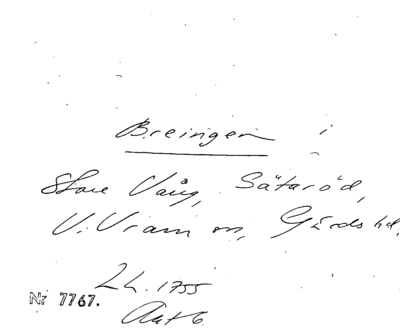 Breingen i
Stora Vång, Sätaröd,
V. Vram sn, Gärds hd.
LL. 1755
Nr 7767.
Akt 6